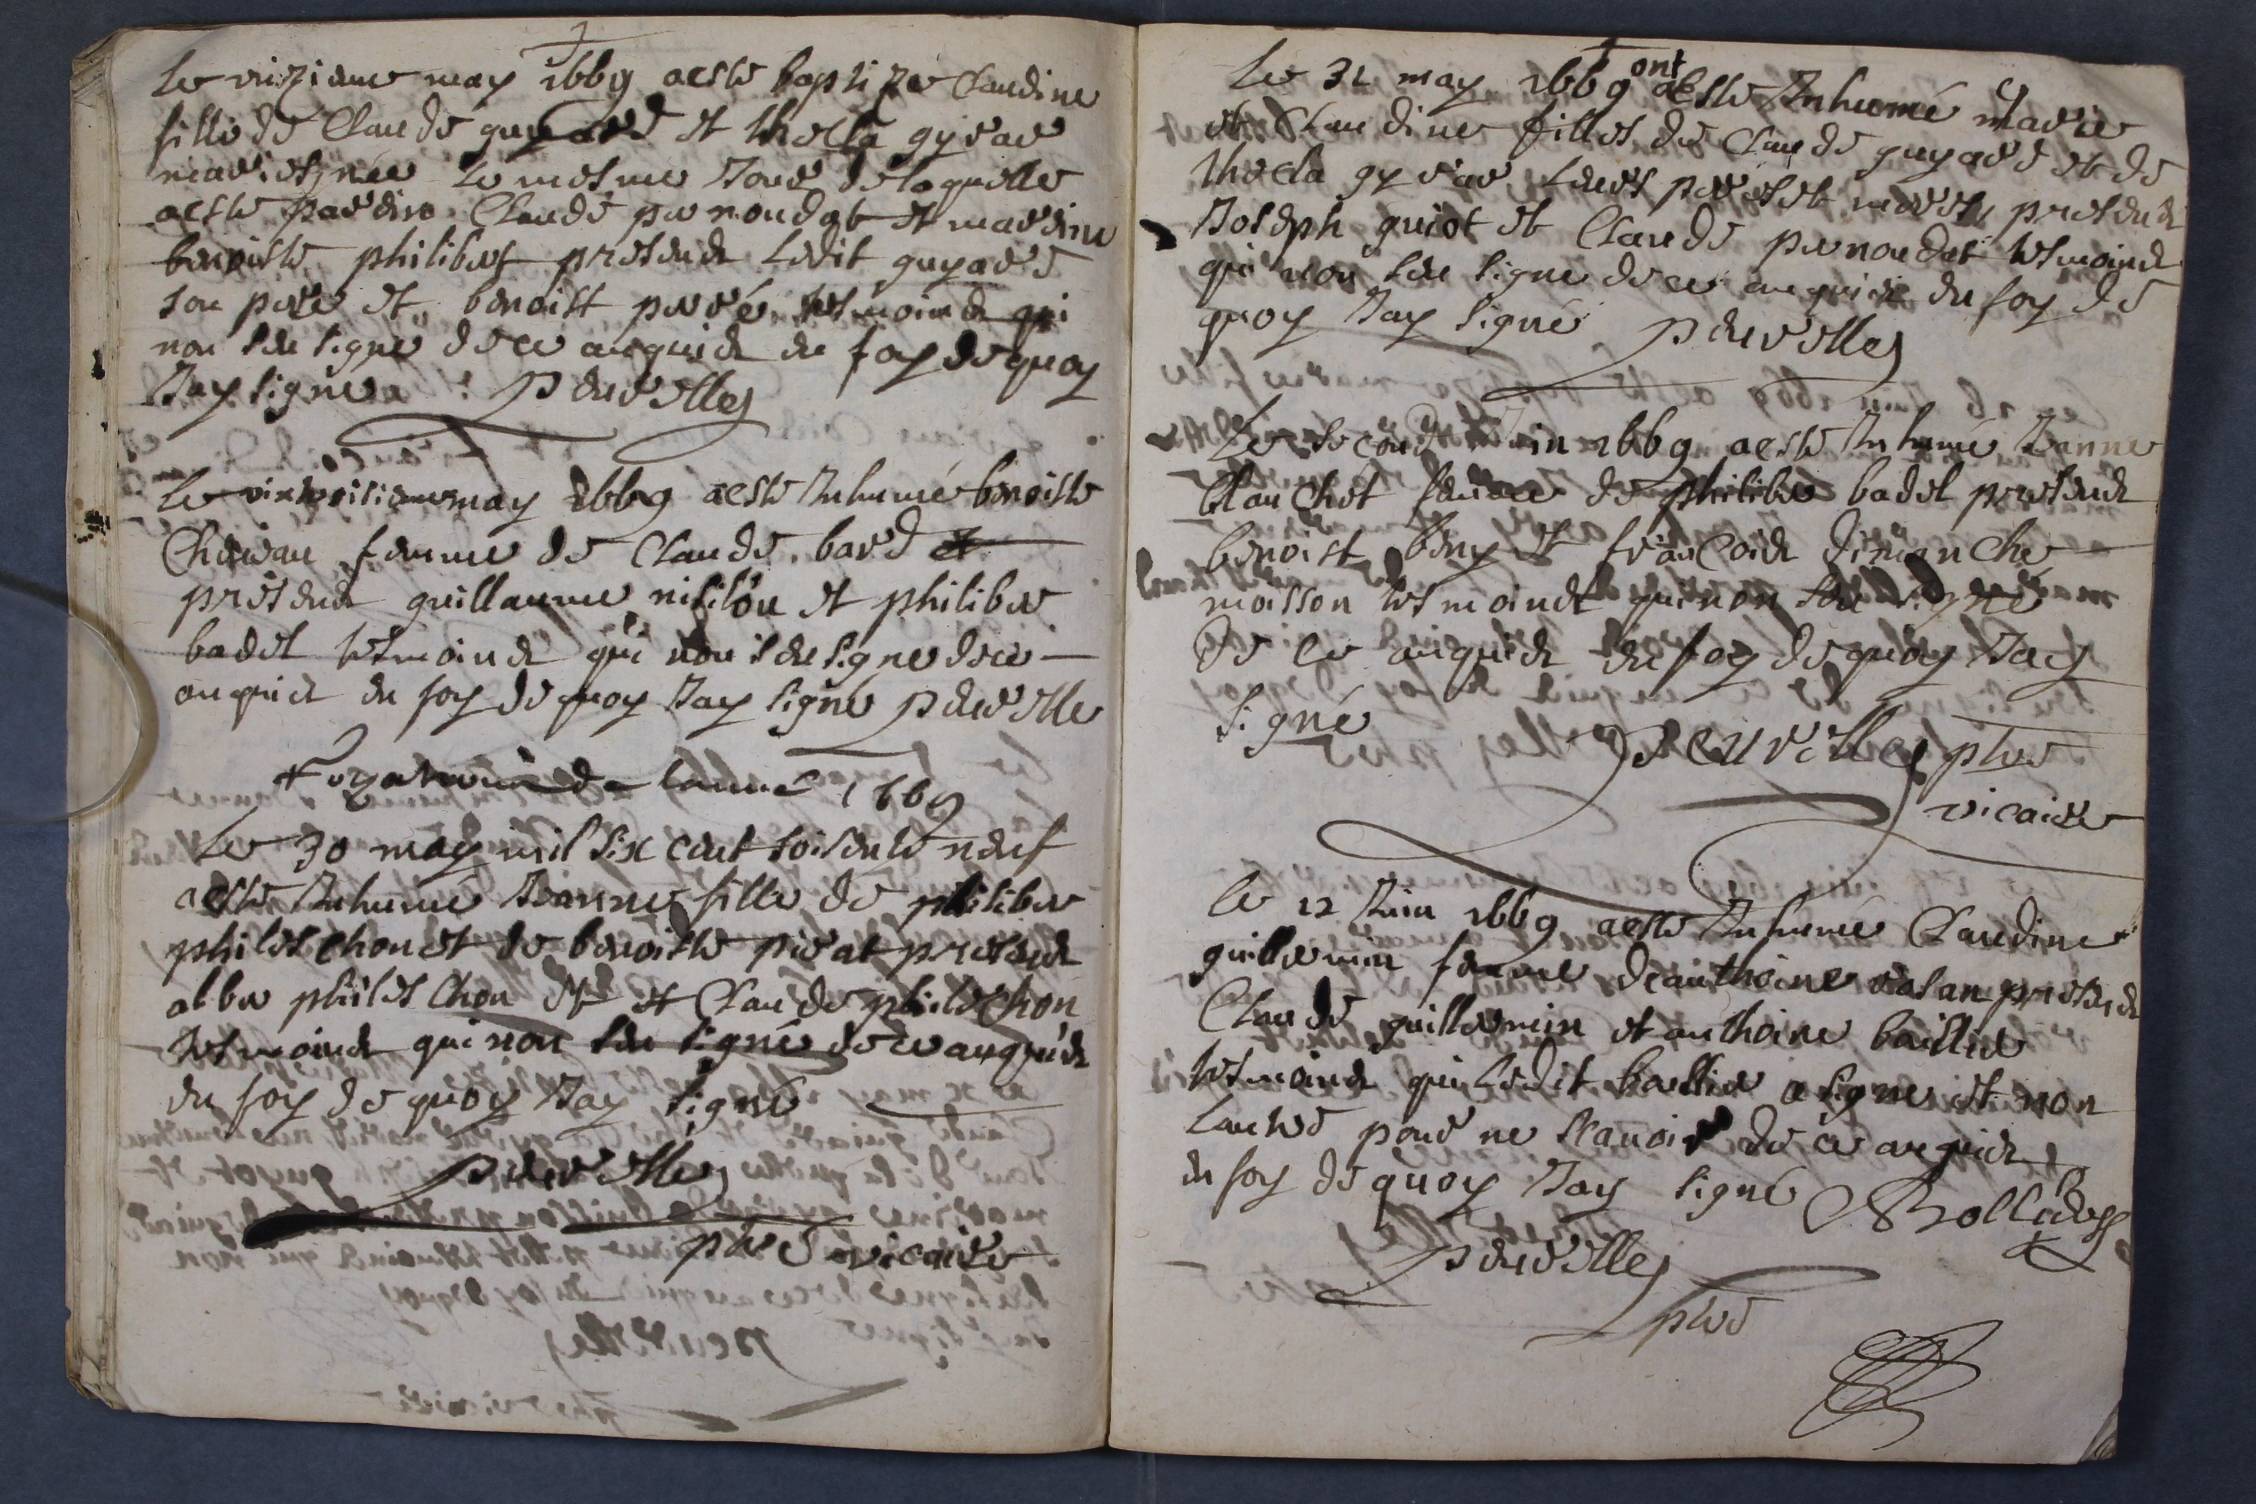 Le vizieme may 1669 a este baptize Claudine
fille de Claude guyard et thecla gyrar
mariet, née le mesme Jour de laquelle
a este pardiro Claude pernoudat et mardine
benoiste philibert presends ledit guyard
son pere et benoist perré tesmoinds qui
non seu signe de ce anquids en foy de quoy
Jay signé Peuvelley
Le vinhuitieme may 1669 a este Inhumé benoiste
femme de Claude bard
presends guillaume et philiber
badet tesmoinds qui non seu signe de ce
anquids en foy de quoy Jay signé Peuvelle
de lanné 1669
Le 30 may mil six cent soisente neuf
a este Inhumé Jeanne fille de philiber
philetchon et de benoiste pirat presends
alber philetchon et Claude philetchon
tesmoinds qui non seu signé de ce anquids
en foy de quoy Jay signé
Peuvelley
pbre vicaire
Le 31 may 1669 ont este Inhumé marie
et Claudine filles de Claude guyard et de
thecla gyrar leurs peres et meres, presends
Joseph guiot et Claude pernoudat tesmoinds
qui non seu signe de ce anquids en foy de
quoy Jay signé Peuvelley
Le second Juin 1669 a este Inhumé Jeanne
blanchet femme de philiber badet presends
benoist beny et francoids dimanche
moisson tesmoinds qui non seu signé
de ce anquids en foy de quoy Jay
signé Peuvelley pbre
vicaire
Le 12 Juin 1669 a este Inhumé Claudine
guillermin femme de anthoine presends
Claude guillermin et anthoine baillier
tesmoinds qui ledit baillier a signe et non
lautre pour ne scauoir de ce anquids
en foy de quoy Jay signé
Peuvelley
pbre